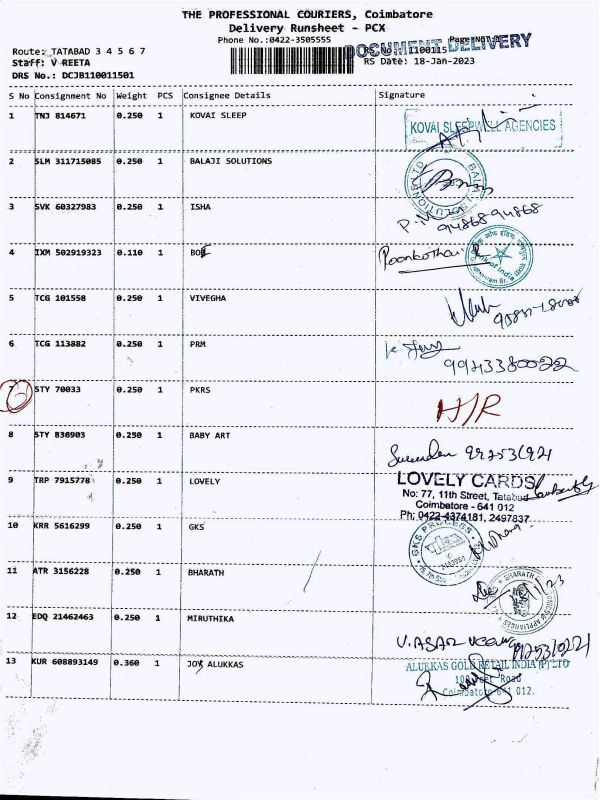 THE PROFESSIONAL COURIERS, Coimbatore
Delivery Runsheet - PCX
Phone No.:0422-3505555
DOCUMENT DELIVERY
Route: TATABAD 3 4 5 6 7
Staff: V REETA
RS Date: 18-Jan-2023
DRS No.: DCJB110011501
S No Consignment No Weight PCS Consignee Details Signature
1 TNJ 814671 0.250 1 KOVAI SLEEP
KOVAI SLEEPWELL AGENCIES
2 SLM 311715085 0.250 1 BALAJI SOLUTIONS
3 SVK 60327983 0.250 1 ISHA
94868 94868
4 IXM 502919323 0.110 1 BOI
Poonkothai
5 TCG 101558 0.250 1 VIVEGHA
6 TCG 113882 0.250 1 PRM
9943380022
7 STY 70033 0.250 1 PKRS H/R
8 STY 836903 0.250 1 BABY ART
9 TRP 7915778 0.250 1 LOVELY
LOVELY CARDS
No: 77, 11th Street, Tatabad
Coimbatore - 641 012
Ph: 0422-4374181, 2497837
10 KRR 5616299 0.250 1 GKS
GKS PROCESS
11 ATR 3156228 0.250 1 BHARATH
BHARATH
12 EDQ 21462463 0.250 1 MIRUTHIKA
13 KUR 608893149 0.360 1 JOY ALUKKAS
ALUKKAS GOLD RETAIL INDIA (P) LTD
100 Feet Road
Coimbatore 641 012.